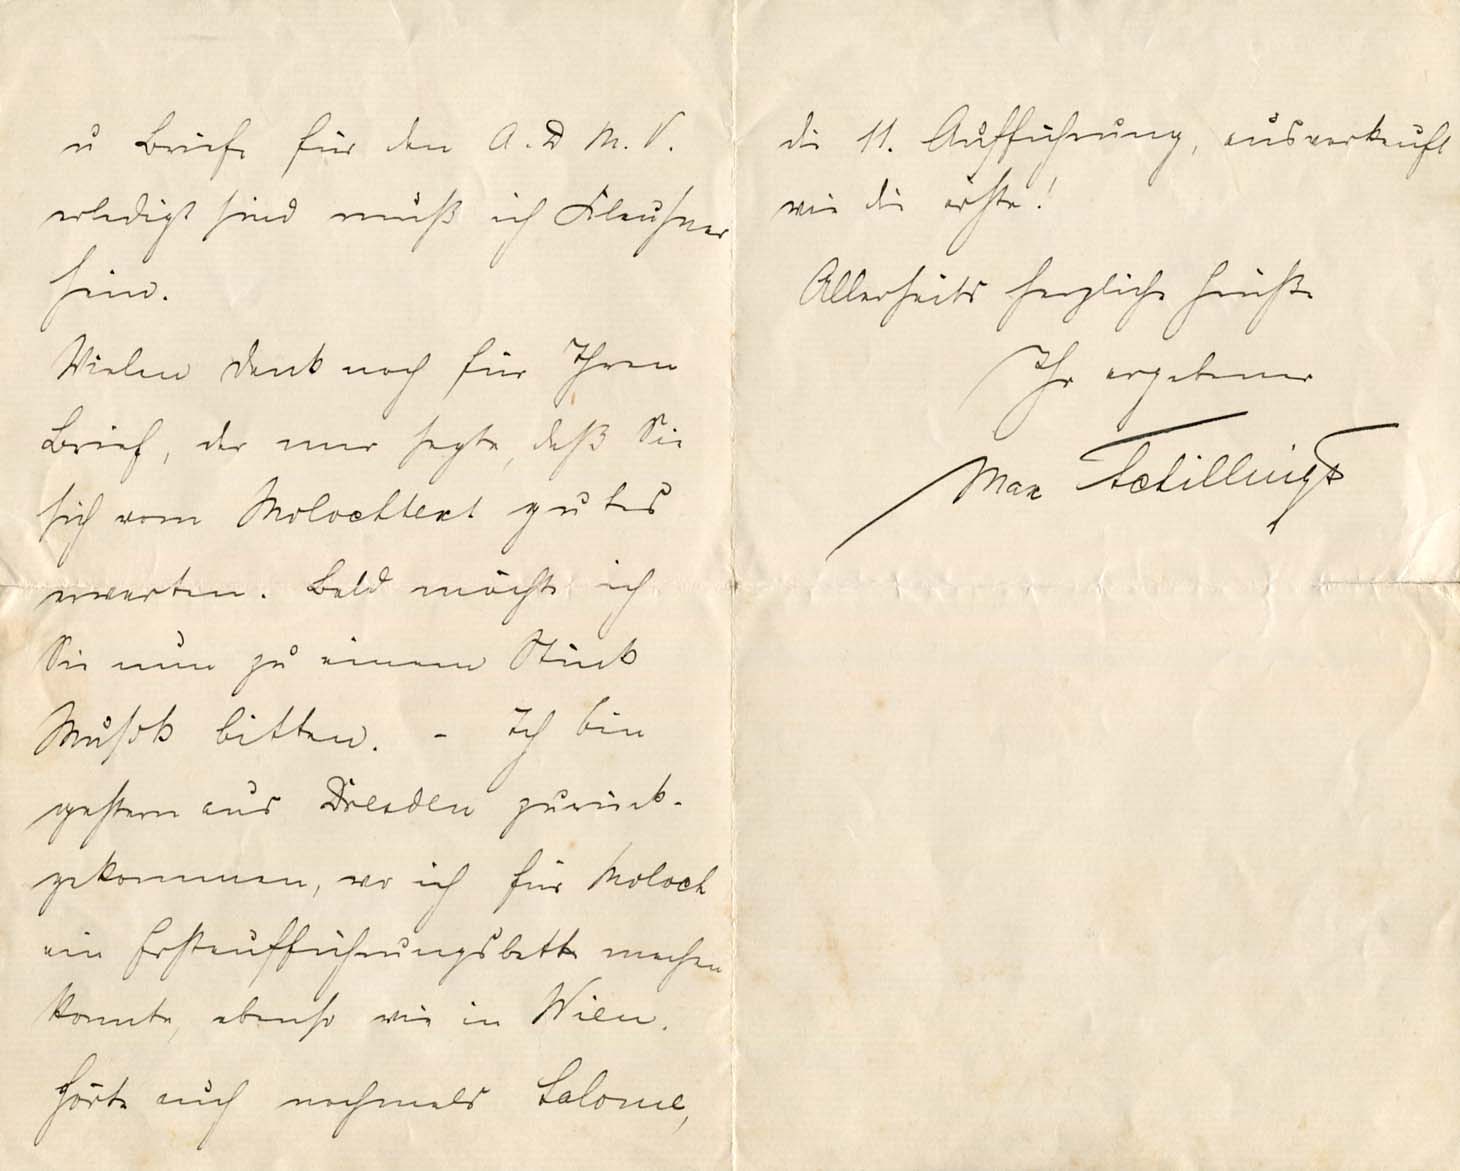 u Briefe für den A.D.M.V.
erledigt sind muß ich Klausner
sein.
Vielen Dank noch für Ihren
Brief, der mir sagte, daß Sie
sich vom Molochtext gutes
erwarten. Bald möchte ich
Sie nun zu einem Stück
Musik bitten. - Ich bin
gestern aus Dresden zurück-
gekommen, wo ich für Moloch
ein Erstaufführungsbett machen
konnte, ebenso wie in Wien.
Hörte auch nochmals Salome,
die 11. Aufführung, ausverkauft
wie die erste!
Allerseits herzliche Grüße
Ihr ergebener
Max Schillings